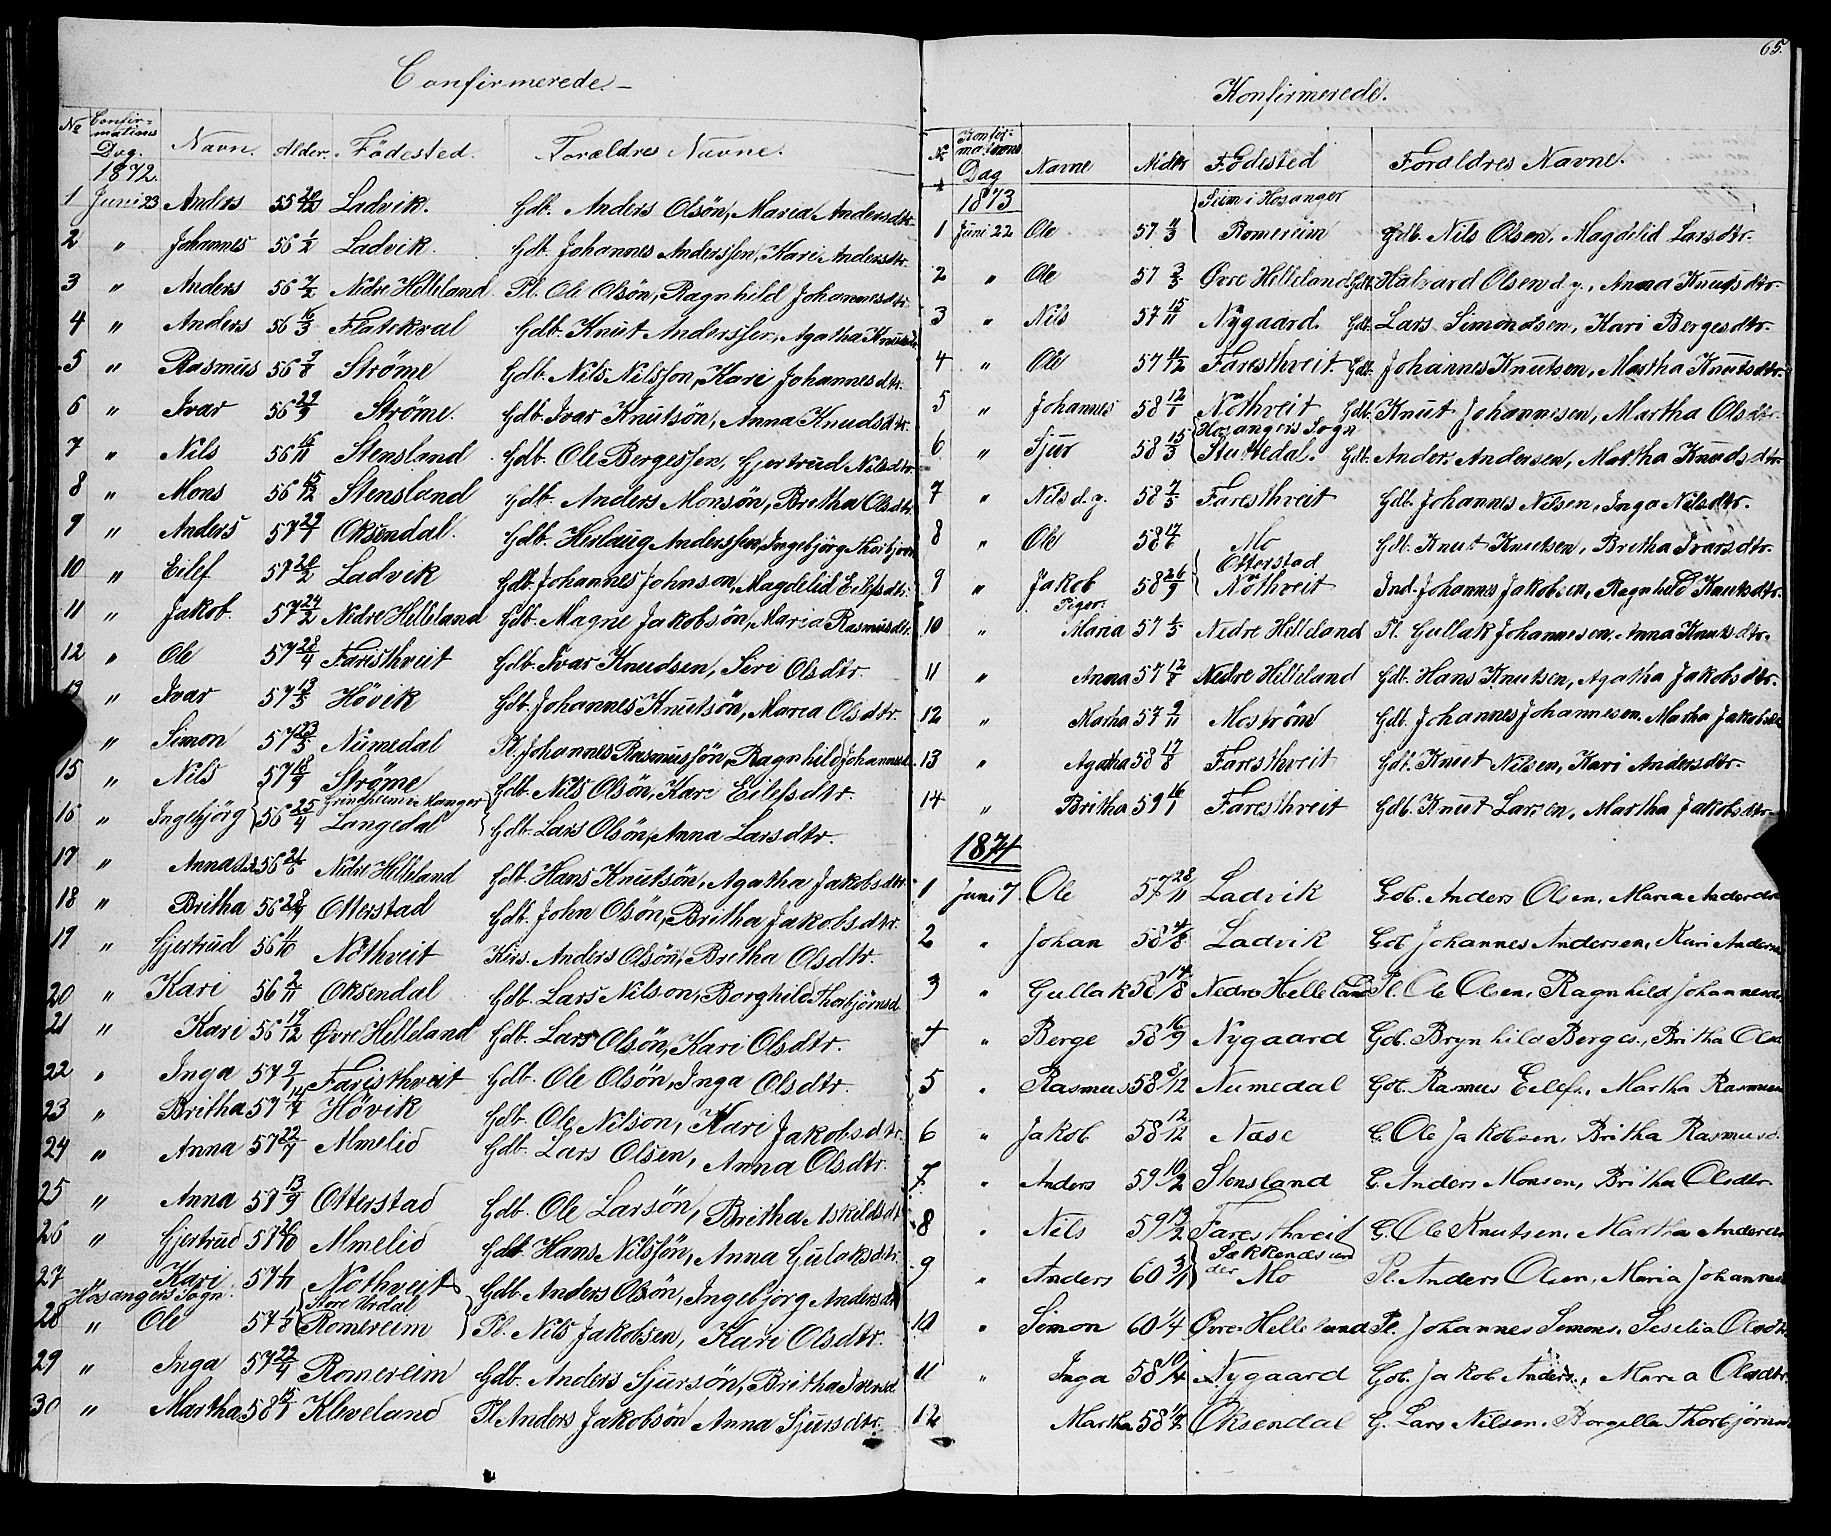 Confirmerede.
No Confirmations Dag. Navn. Alder. Födested. Forældres Navne.
1872.
1 Juni 23 Anders 55 Ladvik. Gdb. Anders Olsön, Maria Andersdtr.
2 " Johannes 56 1/2 Ladvik. Gdb. Johannes Anderssen, Kari Andersdtr.
3 " Anders 56 7/2 Nedre Helleland. Pl. Ole Olsön, Ragnhild Johannesdtr.
4 " Anders 56 16/3 Flatekval Gdb. Knut Anderssen, Agatha
5 " Rasmus 56 Ströme Gdb. Nils Nilsson, Kari Johannesdtr.
6 " Ivar 56 29/9 Ströme. Gdb. Ivar Knutsön, Anna Knudsdtr.
7 " Nils 56 16/11 Stensland Gdb. Ole Bergessen, Gjertrud Nilsdtr.
8 " Mons 56 15/12 Stensland Gdb. Anders Monsön, Britha Olsdtr.
9 " Anders 57 29/1 Oksendal. Gdb. Herlaug Anderssen, Ingebjörg
10 " Eilef 57 20/2 Ladvik Gdb. Johannes Johnson, Magdelid Eilefsdtr.
11 " Jakob. 57 24/2 Nedre Helleland Gdb. Magne Jakobsön, Maria Rasmusdtr.
12 " Ole 57 28/4 Faristhveit Gdb. Ivar Knudsen, Siri Olsdtr.
13 " Ivar 57 13/5 Hövik Gdb. Johannes Knutsön, Maria Olsdtr.
" Simon 57 23/5 Numedal Pl. Johannes Rasmussön, Ragnhild
15 " Nils 57 18/9 Ströme Gdb. Nils Olsön, Kari Eilefsdtr.
16 " Ingebjörg 56 25/4 Grindheim i Manger Langedal Gdb. Lars Olsön, Anna Larsdtr.
17 " Anna 56 Nedre Helleland Gdb. Hans Knutsön, Agatha Jakobsdtr.
18 " Britha 56 28/9 Otterstad Gdb. John Olsön, Britha Jakobsdtr.
19 " Gjertrud 56 Nöthveit Anders Olsön, Britha Olsdtr.
20 " Kari 56 2/11 Oksendal Gdb. Lars Nilson, Borghild
21 " Kari 56 19/12 Øvre Helleland Gdb. Lars Olsön, Kari Olsdtr.
22 " Inga 57 9/1 Faristhveit Gdb. Ole Olsön, Inga Olsdtr.
23 " Britha 57 14/7 Hövik Gdb. Ole Nilson, Kari Jakobsdtr.
24 " Anna 57 22/7 Almelid Gdb. Lars Olsen, Anna Olsdtr.
25 " Anna 57 13/9 Otterstad Gdb. Ole Larsön, Britha Askildsdtr.
26 " Gjertrud 57 20/10 Almelid Gdb. Hans Nilssön, Anna Gulaksdtr.
27 " Kari 57 Nöthveit Gdb. Anders Olsön, Ingebjörg Andersdtr
Hosangers Sogn.
28 " Ole 57 Store Urdal Romereim Pl. Nils Jakobsen, Kari Olsdtr.
29 " Inga 57 Romereim Gdb. Anders Sjursön, Britha
30 " Martha 58 15/1 Kleveland Pl. Anders Jakobsön Anna Sjursdtr.
65.
Konfirmerede.
No Konfirmations Dag Navne Alder Födested Forældres Navne.
1873
1 Juni 22 Ole 57 11/3 Seim i Hosanger Romereim Gdb. Nils Olsen, Magdelid Larsdtr.
2 " Ole 57 Øvre Helleland Gdb. Halvard Olsen d.y., Anna Knutsdtr.
3 " Nils 57 15/11 Nygaard. Gdb. Lars Simondsen, Kari Bergesdtr.
4 " Ole 57 11/12 Faresthveit Gdb. Johannes Knutsen, Martha Knutsdtr.
5 " Johannes 58 12/1 Nöthveit Gdb. Knut Johannesen, Martha Olsdtr.
6 " Sjur 58 15/3 Hosangers Sogn Gdb. Anders Andersen, Martha Knudsdtr.
7 " Nils d.y. 58 7/5 Faresthveit Gdb. Johannes Nilsen, Inga Nilsdtr.
8 " Ole 58 17/6 Mo Gdb. Knut Knutsen, Britha Ivarsdtr.
9 " Jakob 58 26/9 Otterstad Nöthveit Ind. Johannes Jakobsen, Ragnhild Knutsdtr.
Piger.
10 " Maria 57 Nedre Helleland Pl. Gullak Johannesen, Anna Knutsdtr.
11 " Anna 57 12/8 Nedre Helleland Gdb. Hans Knutsen, Agatha Jakobsdtr.
12 " Martha 57 9/11 Moström Gdb. Johannes Johannesen, Martha
13 " Agatha 58 17/8 Faresthveit Gdb. Knut Nilsen, Kari Andersdtr.
14 " Britha 59 16/1 Faresthveit Gdb. Knut Larsen, Martha Jakobsdtr.
1874
1 Juni 7 Ole 57 28/11 Ladvik Gdb. Anders Olsen, Maria
2 " Johan 58 4/8 Ladvik Gdb Johannes Andersen, Kari
3 " Gullak 58 14/8 Nedre Helleland Pl. Ole Olsen, Ragnhild
4 " Berge 58 16/9 Nygaard Gdb. Brynhild Berges., Britha
5 " Rasmus 58 Numedal Gdb. Rasmus Eilefs., Martha
6 " Jakob 58 12/12 Næse G. Ole Jakobsen, Britha Rasmusd.
7 " Anders 59 10/2 Stensland G. Anders Monsen, Britha Olsdtr.
8 " Nils 59 Faresthveit G. Ole Knutsen, Martha
9 " Anders 60 3/1 Sækkenæs under Mo Pl. Anders Olsen, Maria
10 " Simon 60 1/4 Øvre Helleland Pl. Johannes Simons., Seselia
11 " Inga 58 10/4 Nygaard Gdb. Jakob Anders., Maria Olsdtr.
12 Martha 58 Oksendal G. Lars Nilsen,